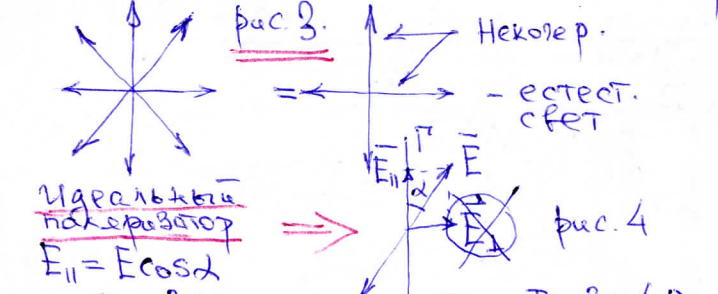 рис. 3.
Некогер.
= - естест.
свет
Г
E̅|| E̅
α
Идеальный
поляризатор
E̅⊥ рис. 4
E|| = E cos α